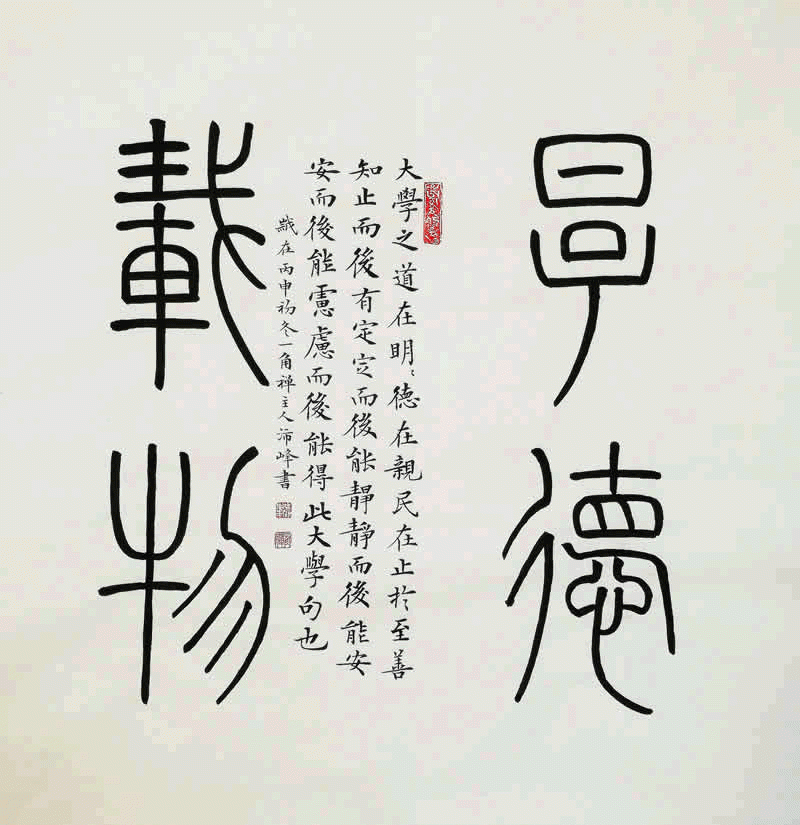 厚德
大學之道在明〻德在親民在止於至善
知止而後有定定而後能靜靜而後能安
安而後能慮慮而後能得此大學句也
歲在丙申初冬一角禪主人沛峰書
載物